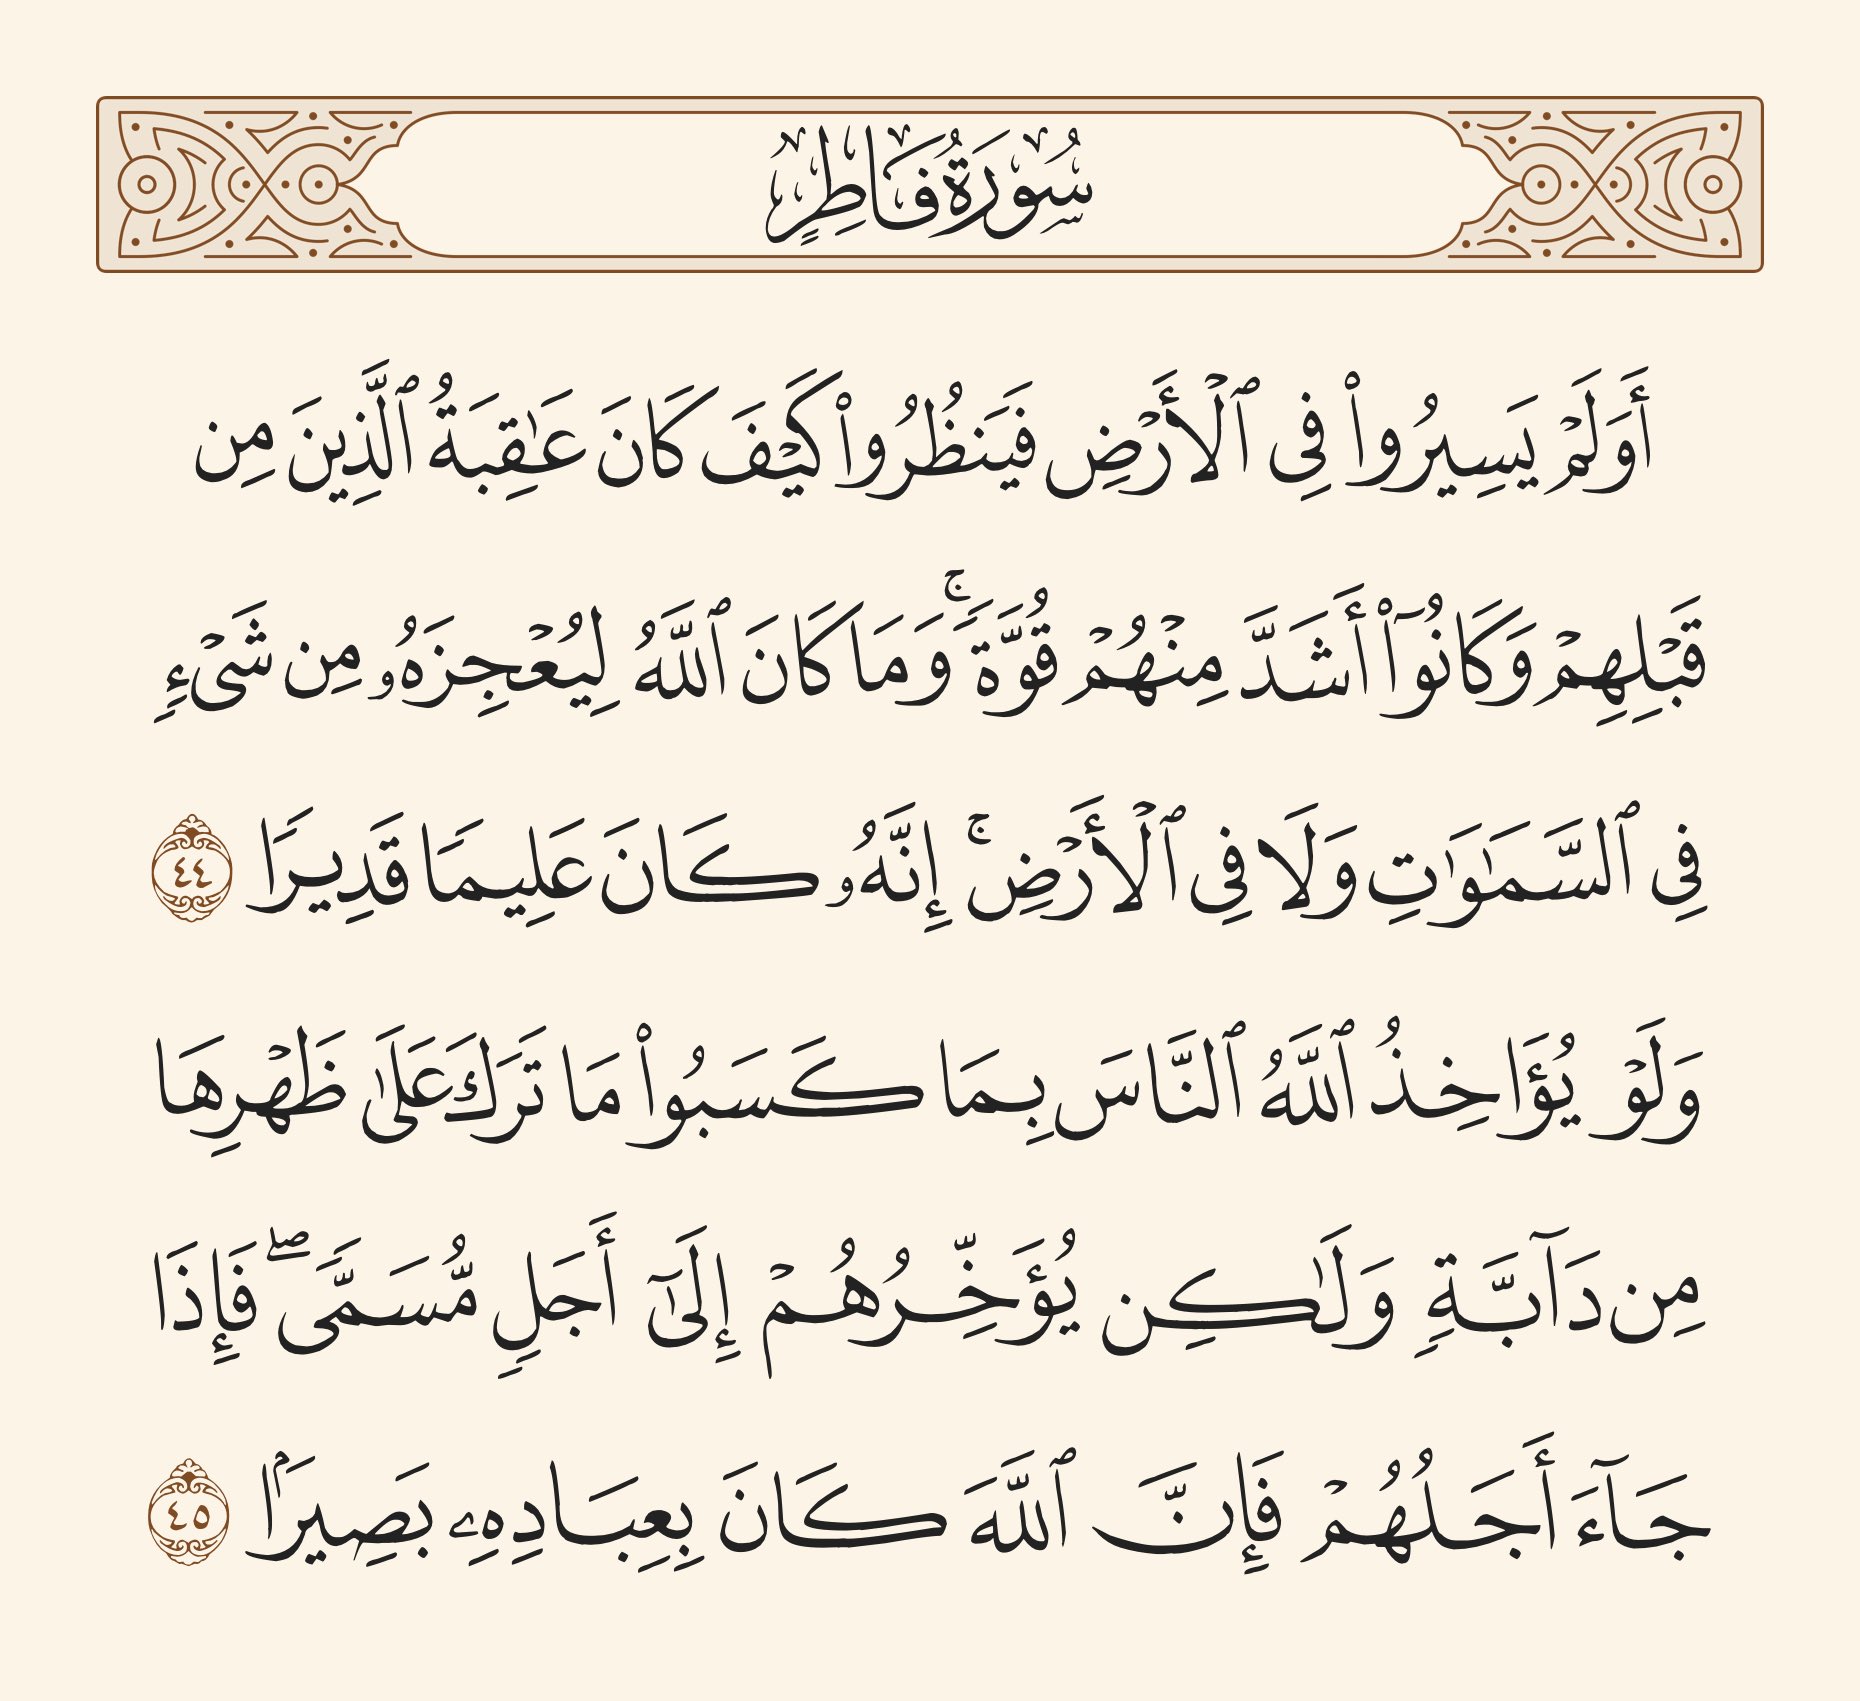 سُورَةُ فَاطِرٍ
أَوَلَمْ يَسِيرُوا۟ فِى ٱلْأَرْضِ فَيَنظُرُوا۟ كَيْفَ كَانَ عَـٰقِبَةُ ٱلَّذِينَ مِن
قَبْلِهِمْ وَكَانُوٓا۟ أَشَدَّ مِنْهُمْ قُوَّةً ۚ وَمَا كَانَ ٱللَّهُ لِيُعْجِزَهُۥ مِن شَىْءٍ
فِى ٱلسَّمَـٰوَٰتِ وَلَا فِى ٱلْأَرْضِ ۚ إِنَّهُۥ كَانَ عَلِيمًا قَدِيرًا ٤٤
وَلَوْ يُؤَاخِذُ ٱللَّهُ ٱلنَّاسَ بِمَا كَسَبُوا۟ مَا تَرَكَ عَلَىٰ ظَهْرِهَا
مِن دَآبَّةٍ وَلَـٰكِن يُؤَخِّرُهُمْ إِلَىٰٓ أَجَلٍ مُّسَمًّى ۖ فَإِذَا
جَآءَ أَجَلُهُمْ فَإِنَّ ٱللَّهَ كَانَ بِعِبَادِهِۦ بَصِيرًۢا ٤٥